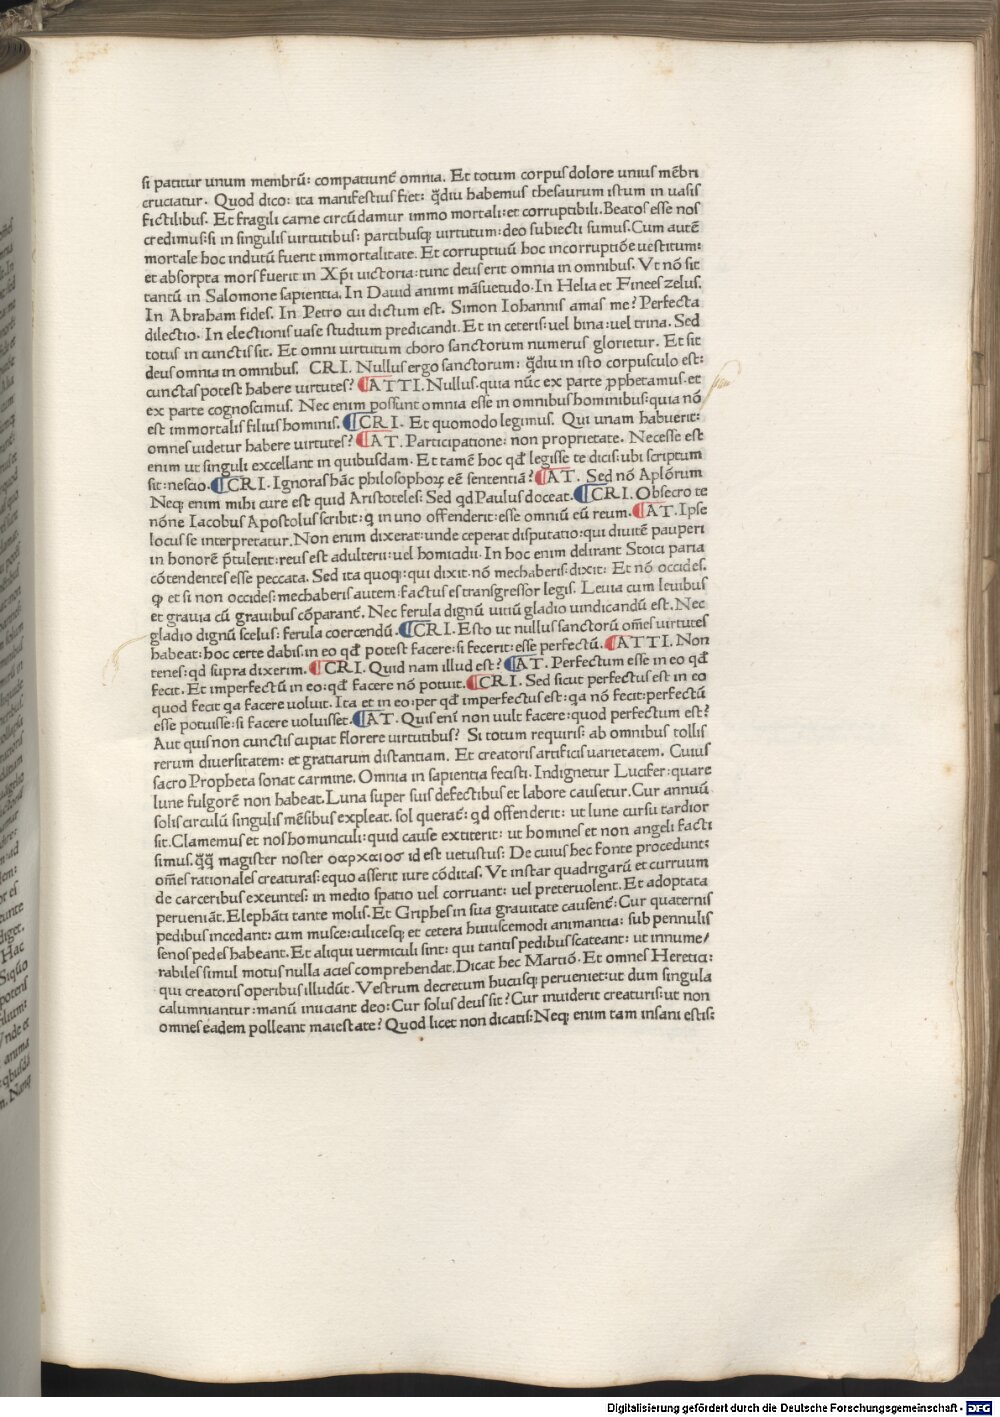 si patitur unum membrū: compatiunt̄ omnia. Et totum corpus dolore unius mēbri
cruciatur. Quod dico: ita manifestius fiet: q̄diu habemus thesaurum istum in uasis
fictilibus. Et fragili carne circūdamur immo mortali: et corruptibili. Beatos esse nos
credimus: si in singulis uirtutibus: partibusq; uirtutum: deo subiecti sumus. Cum autē
mortale hoc indutū fuerit immortalitate. Et corruptiuū hoc incorruptiōe uestitum:
et absorpta mors fuerit in Xp̄i uictoria: tunc deus erit omnia in omnibus. Vt nō sit
tantū in Salomone sapientia. In Dauid animi māsuetudo. In Helia et Finees zelus.
In Abraham fides. In Petro cui dictum est. Simon Iohannis amas me? Perfecta
dilectio. In electionis uase studium predicandi. Et in ceteris: uel bina: uel trina. Sed
totus in cunctis sit. Et omni uirtutum choro sanctorum numerus glorietur. Et sit
deus omnia in omnibus. CRI. Nullus ergo sanctorum: q̄diu in isto corpusculo est:
cunctas potest habere uirtutes? ¶ATTI. Nullus. quia nūc ex parte ꝓphetamus. et
ex parte cognoscimus. Nec enim possunt omnia esse in omnibus hominibus: quia nō
est immortalis filius hominis. ¶CRI. Et quomodo legimus. Qui unam habuerit:
omnes uidetur habere uirtutes? ¶AT. Participatione: non proprietate. Necesse est
enim ut singuli excellant in quibusdam. Et tamē hoc qđ legisse te dicis: ubi scriptum
sit: nescio. ¶CRI. Ignoras hāc philosophoꝝ eē sententiā? ¶AT. Sed nō Aplōrum
Neq; enim mihi cure est quid Aristoteles: Sed qd Paulus doceat. ¶CRI. Obsecro te
nōne Iacobus Apostolus scribit: ꝙ in uno offenderit: esse omniū eū reum. ¶AT. Ipse
locus se interpretatur. Non enim dixerat: unde ceperat disputatio: qui diuitē pauperi
in honorē p̄tulerit: reus est adulterii: uel homicidii. In hoc enim delirant Stoici paria
cōtendentes esse peccata. Sed ita quoq;: qui dixit. nō mechaberis: dixit: Et nō occides.
ꝙ et si non occides: mechaberis autem: factus es transgressor legis. Leuia cum leuibus
et grauia cū grauibus cōparant̄. Nec ferula dignū uitiū gladio uindicandū est. Nec
gladio dignū scelus: ferula coercendū. ¶CRI. Esto ut nullus sanctorū om̄es uirtutes
habeat: hoc certe dabis. in eo qđ potest facere: si fecerit: esse perfectū. ¶ATTI. Non
tenes: qd supra dixerim. ¶CRI. Quid nam illud est? ¶AT. Perfectum esse in eo qđ
fecit. Et imperfectū in eo: qđ facere nō potuit. ¶CRI. Sed sicut perfectus est in eo
quod fecit qa facere uoluit. Ita et in eo: per qđ imperfectus est: qa nō fecit: perfectū
esse potuisse: si facere uoluisset. ¶AT. Quis enī non uult facere: quod perfectum est?
Aut quis non cunctis cupiat florere uirtutibus? Si totum requiris: ab omnibus tollis
rerum diuersitatem: et gratiarum distantiam. Et creatoris artificis uarietatem. Cuius
sacro Propheta sonat carmine. Omnia in sapientia fecisti. Indignetur Lucifer: quare
lune fulgorē non habeat. Luna super suis defectibus et labore causetur. Cur annuū
solis circulū singulis mēsibus expleat. sol querat̄: qd offenderit: ut lune cursu tardior
sit. Clamemus et nos homunculi: quid cause extiterit: ut homines et non angeli facti
simus. q̄q̄ magister noster οαρχαιοσ id est uetustus: De cuius hec fonte procedunt:
om̄es rationales creaturas: equo asserit iure cōditas. Vt instar quadrigarū et curruum
de carceribus exeuntes: in medio spatio uel corruant: uel preteruolent. Et adoptata
perueniāt. Elephāti tante molis. Et Griphes in sua grauitate causent̄: Cur quaternis
pedibus incedant: cum musce: culicesq; et cetera huiuscemodi animantia: sub pennulis
senos pedes habeant. Et aliqui uermiculi sint: qui tantis pedibus scateant: ut innume/
rabiles simul motus nulla acies comprehendat. Dicat hec Martiō. Et omnes Heretici:
qui creatoris operibus illudūt. Vestrum decretum hucusq; perueniet: ut dum singula
calumniantur: manū iniciant deo: Cur solus deus sit? Cur inuiderit creaturis: ut non
omnes eadem polleant maiestate? Quod licet non dicatis: Neq; enim tam insani estis:
Digitalisierung gefördert durch die Deutsche Forschungsgemeinschaft - DFG